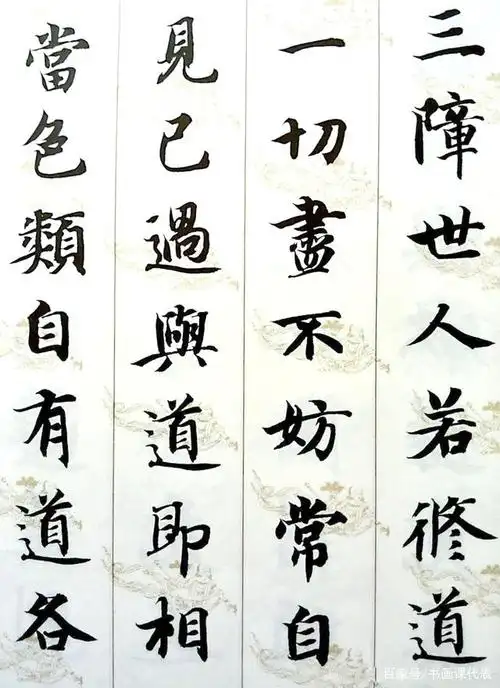 三障世人若修道
一切盡不妨常自
見已過與道即相
當色類自有道各
百家号/书画课代表